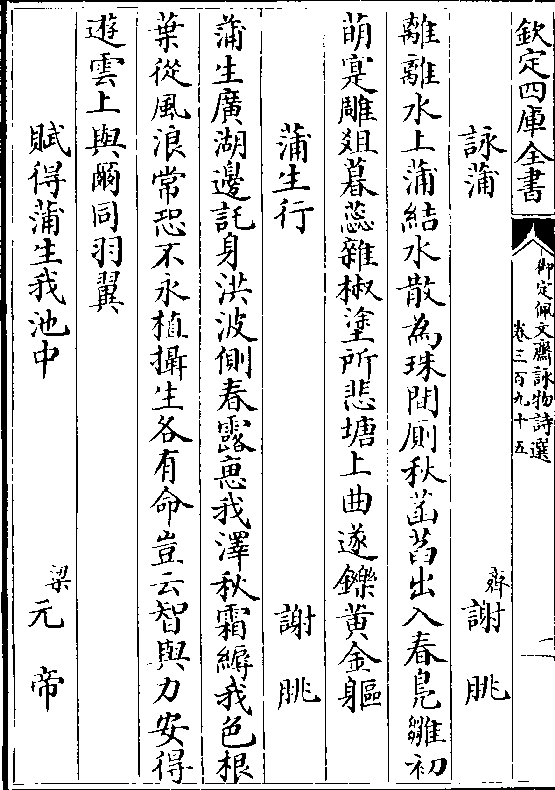 欽定四庫全書
御定佩文齋詠物詩選
卷三百九十五
二
詠蒲 齊謝朓
離離水上蒲結水散為珠間厠秋菡萏出入春鳧雛初
萌寔雕俎暮蕊雜椒塗所悲塘上曲遂鑠黄金軀
蒲生行 謝朓
蒲生廣湖邊託身洪波側春露惠我澤秋霜縟我色根
葉從風浪常恐不永植攝生各有命豈云智與力安得
遊雲上與爾同羽翼
賦得蒲生我池中 梁元帝